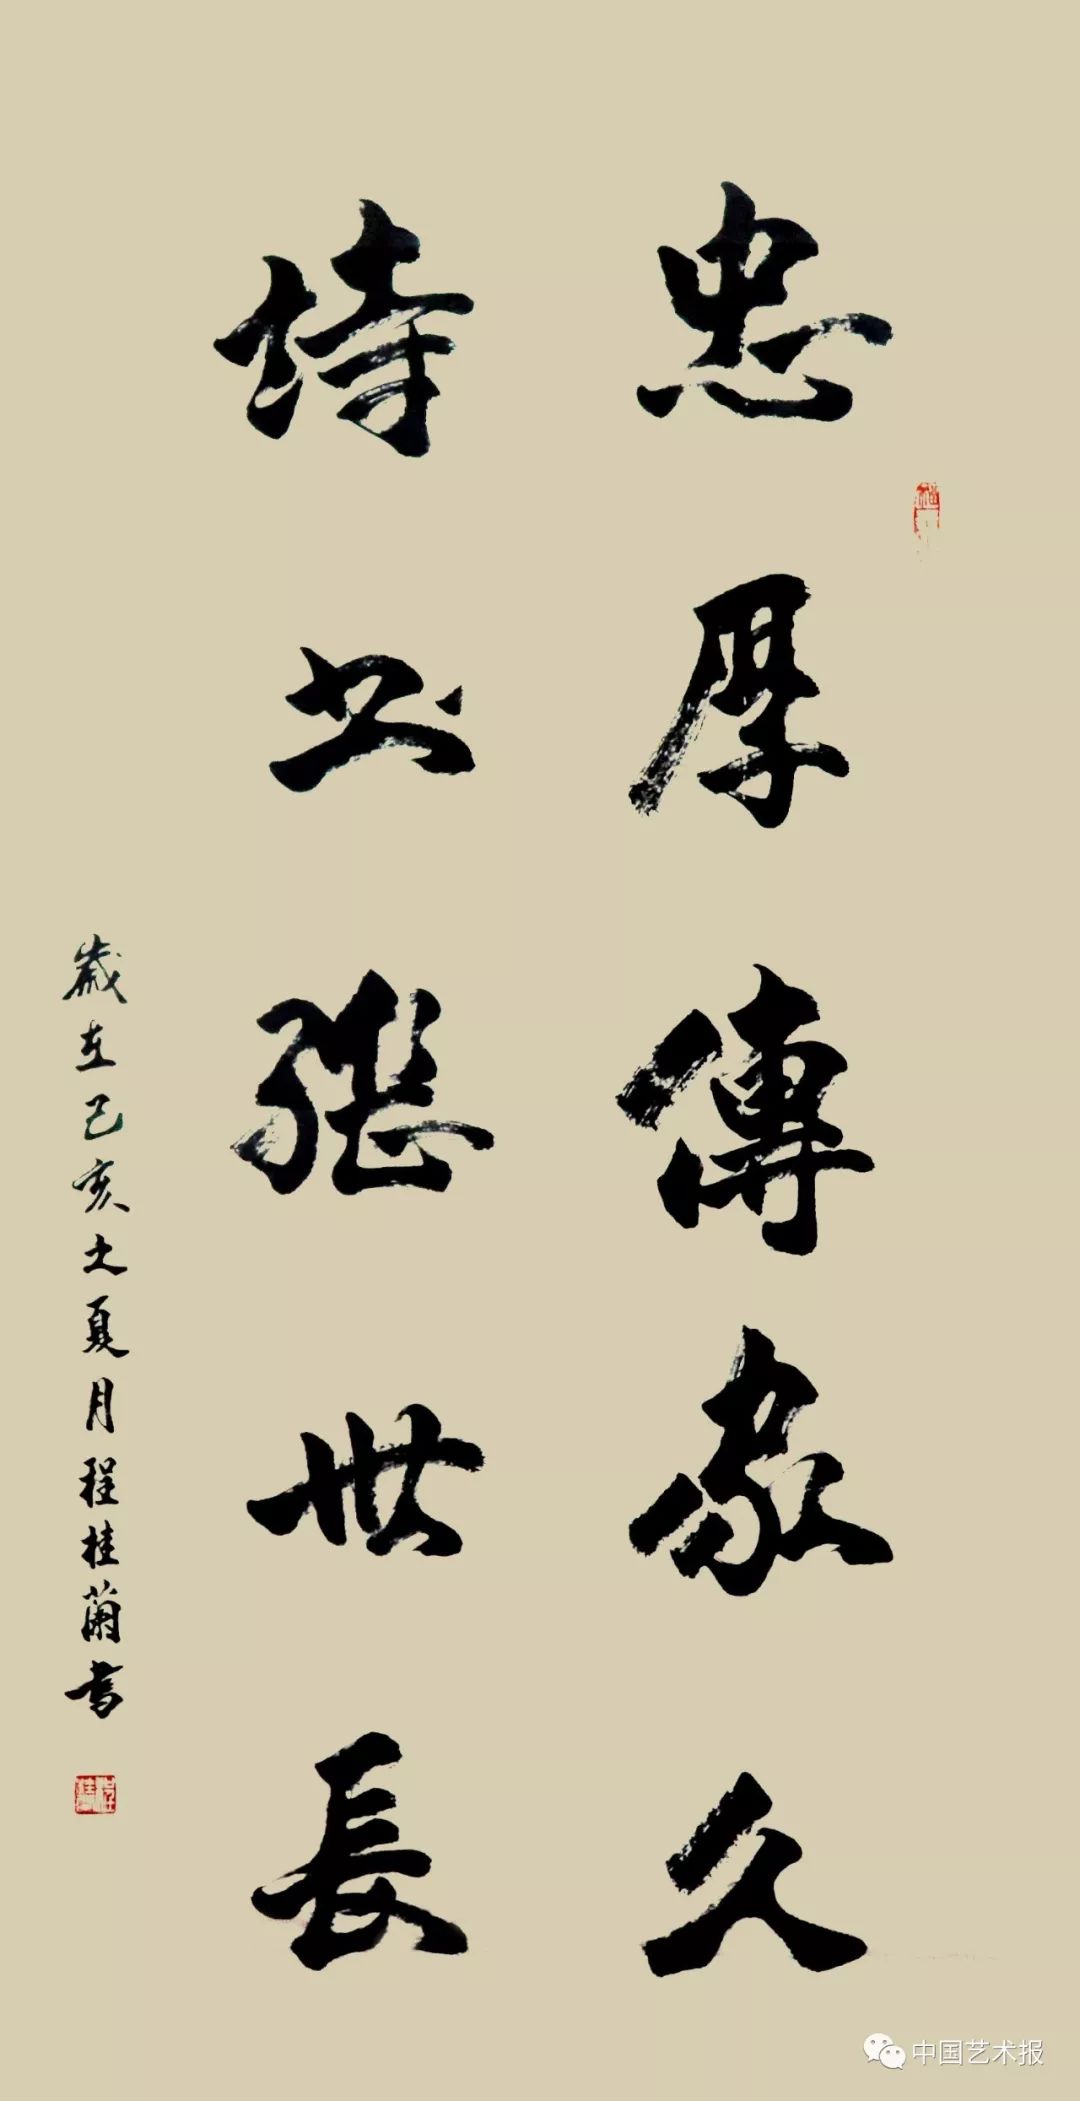 忠厚傳家久
詩書繼世長
歲在己亥之夏月程桂蘭書
中国艺术报